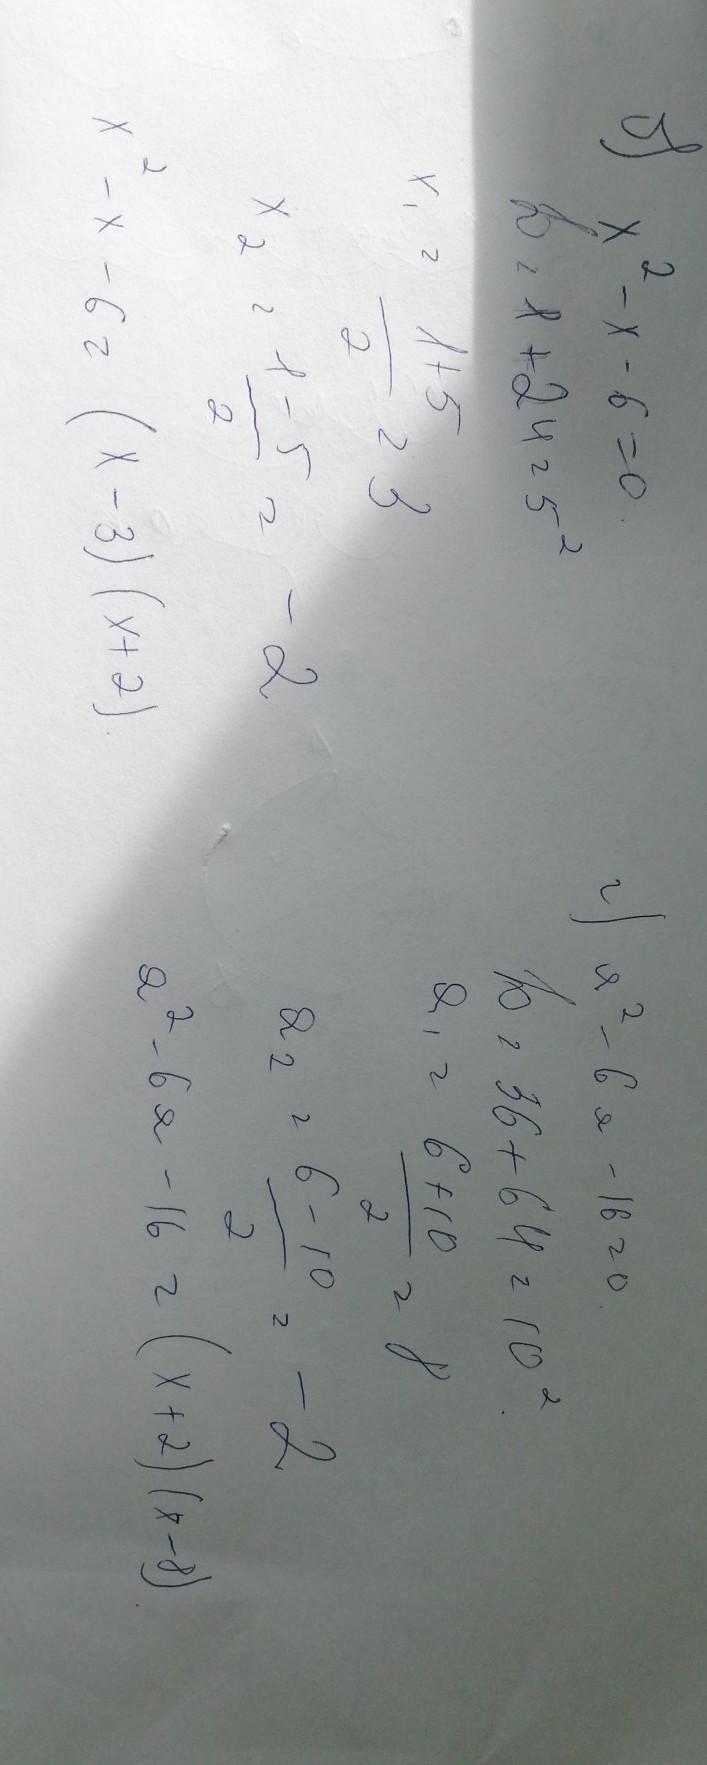 б) x² - x - 6 = 0.
D = 1 + 24 = 5²
x₁ = (1+5)/2 = 3
x₂ = (1-5)/2 = -2
x² - x - 6 = (x-3)(x+2).
г) a² - 6a - 16 = 0.
D = 36 + 64 = 10².
a₁ = (6+10)/2 = 8
a₂ = (6-10)/2 = -2
a² - 6a - 16 = (x+2)(x-8).